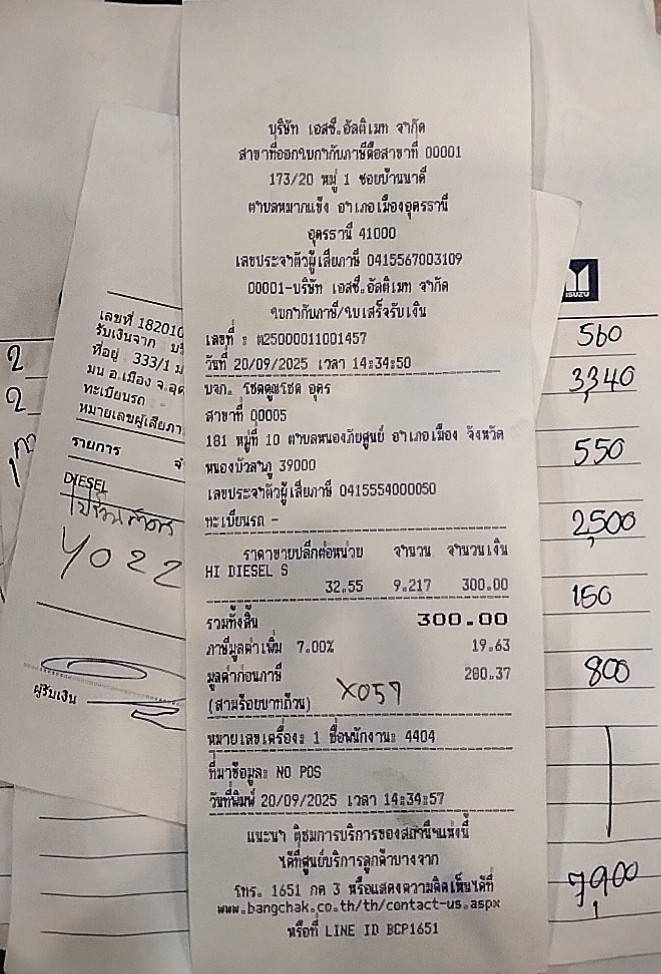 บริษัท เอสซี.อัลติเมท จำกัด
สาขาที่ออกใบกำกับภาษีคือสาขาที่ 00001
173/20 หมู่ 1 ซอยบ้านนาดี
ตำบลหมากแข้ง อำเภอเมืองอุดรธานี
อุดรธานี 41000
เลขประจำตัวผู้เสียภาษี 0415567003109
00001-บริษัท เอสซี.อัลติเมท จำกัด
ใบกำกับภาษี/ใบเสร็จรับเงิน
เลขที่ : ต25000011001457
วันที่ 20/09/2025 เวลา 14:34:50
บจก. โชคคูณโชค อุดร
สาขาที่ 00005
181 หมู่ที่ 10 ตำบลหนองภัยศูนย์ อำเภอเมือง จังหวัด
หนองบัวลำภู 39000
เลขประจำตัวผู้เสียภาษี 0415554000050
ทะเบียนรถ -
ราคาขายปลีกต่อหน่วย จำนวน จำนวนเงิน
HI DIESEL S
32.55 9.217 300.00
รวมทั้งสิ้น 300.00
ภาษีมูลค่าเพิ่ม 7.00% 19.63
มูลค่าก่อนภาษี 280.37
(สามร้อยบาทถ้วน) X057
หมายเลขเครื่อง: 1 ชื่อพนักงาน: 4404
ที่มาข้อมูล: NO POS
วันที่พิมพ์ 20/09/2025 เวลา 14:34:57
แนะนำ ติชมการบริการของสถานีฯแห่งนี้
ได้ที่ศูนย์บริการลูกค้าบางจาก
โทร. 1651 กด 3 หรือแสดงความคิดเห็นได้ที่
www.bangchak.co.th/th/contact-us.aspx
หรือที่ LINE ID BCP1651
เลขที่ 182010
รับเงินจาก บริ
ที่อยู่ 333/1 ม
มน อ.เมือง จ.อุด
ทะเบียนรถ
หมายเลขผู้เสียภา
รายการ
DIESEL
4022
ผู้รับเงิน
2
2
ISUZU
560
3,340
550
2,500
150
800
7,900